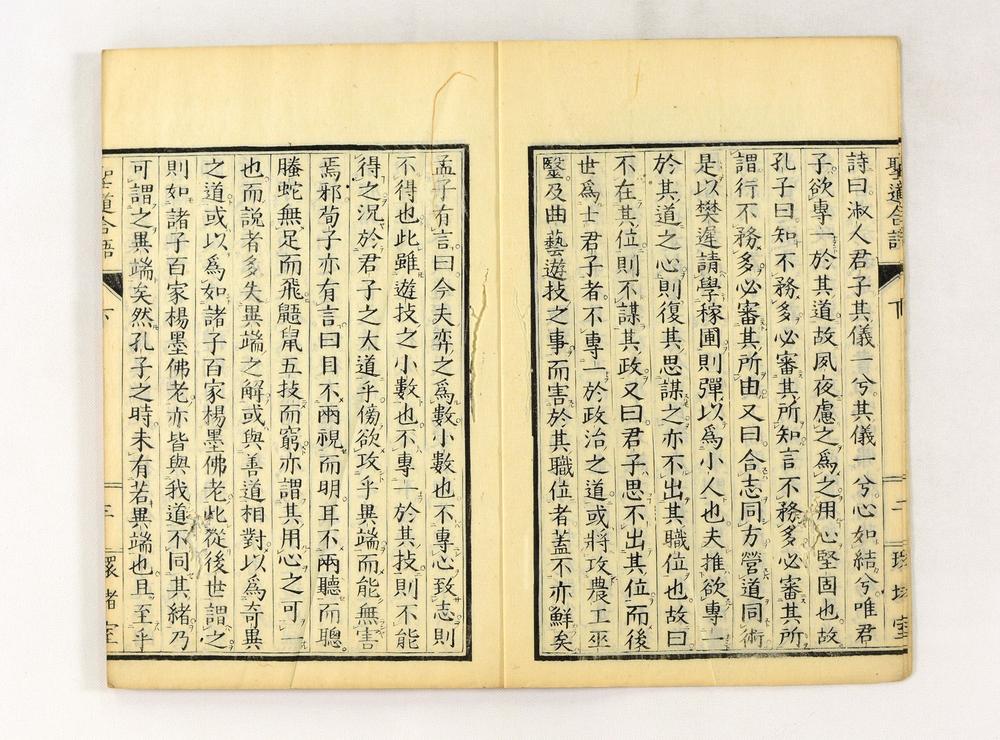 詩曰淑人君子其儀一兮其儀一兮心如結兮唯君
子欲專一於其道故夙夜慮之爲之用心堅固也故
孔子曰知不務多必審其所知言不務多必審其所
謂行不務多必審其所由又曰合志同方營道同術
是以樊遲請學稼圃則彈以爲小人也夫推欲專一
於其道之心則復其思謀之亦不出其職位也故曰
不在其位則不謀其政又曰君子思不出其位而後
世爲士君子者不專一於政治之道或將攻農工巫
毉及曲藝遊技之事而害於其職位者蓋不亦鮮矣
孟子有言曰今夫弈之爲數小數也不專心致志則
不得也此雖遊技之小數也不專一於其技則不能
得之況於君子之大道乎傍欲攻乎異端而能無害
焉邪荀子亦有言曰目不兩視而明耳不兩聽而聰
螣蛇無足而飛鼯鼠五技而窮亦謂其用心之可一
也而說者多失異端之解或與善道相對以爲奇異
之道或以爲如諸子百家楊墨佛老此從後世謂之
則如諸子百家楊墨佛老亦皆與我道不同其緒乃
可謂之異端矣然孔子之時未有若異端也且至乎
聖道合語 下 三 環堵室